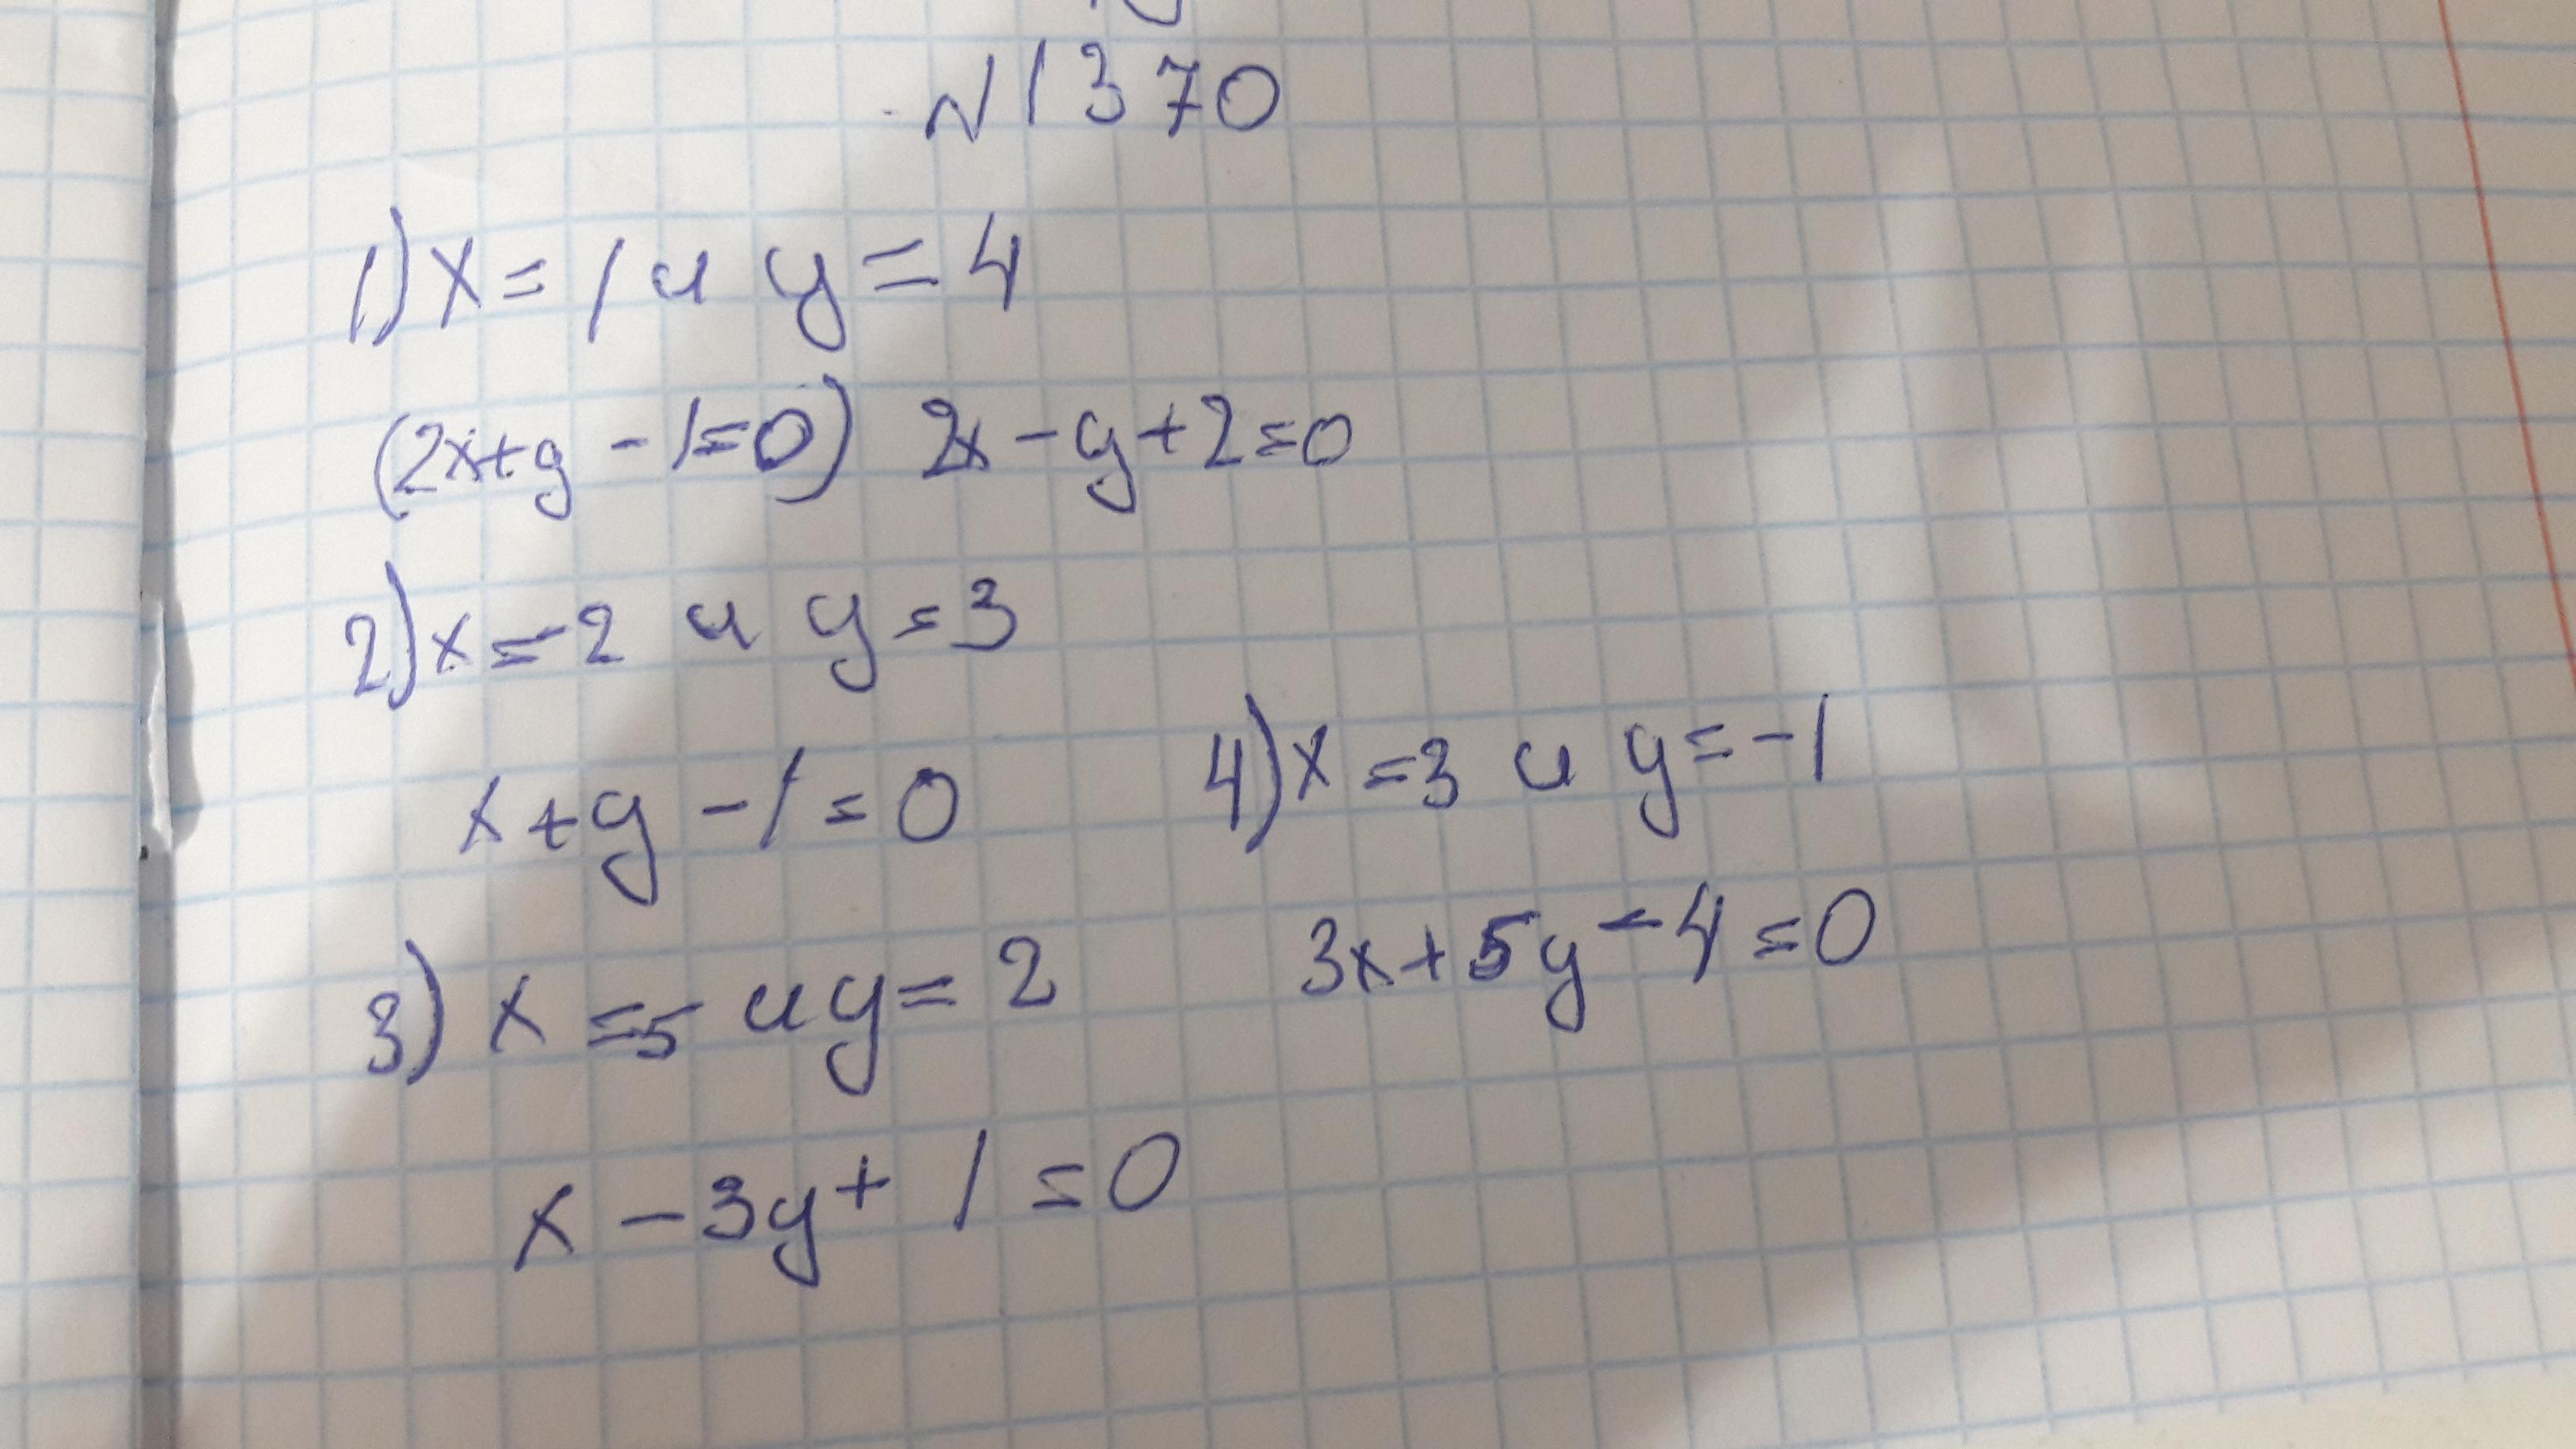 №1370
1) x = 1 и y = 4
(2x+y - 1=0) 2x - y + 2 = 0
2) x = -2 и y = 3
x + y - 1 = 0
3) x = 5 и y = 2
x - 3y + 1 = 0
4) x = 3 и y = -1
3x + 5y - 4 = 0